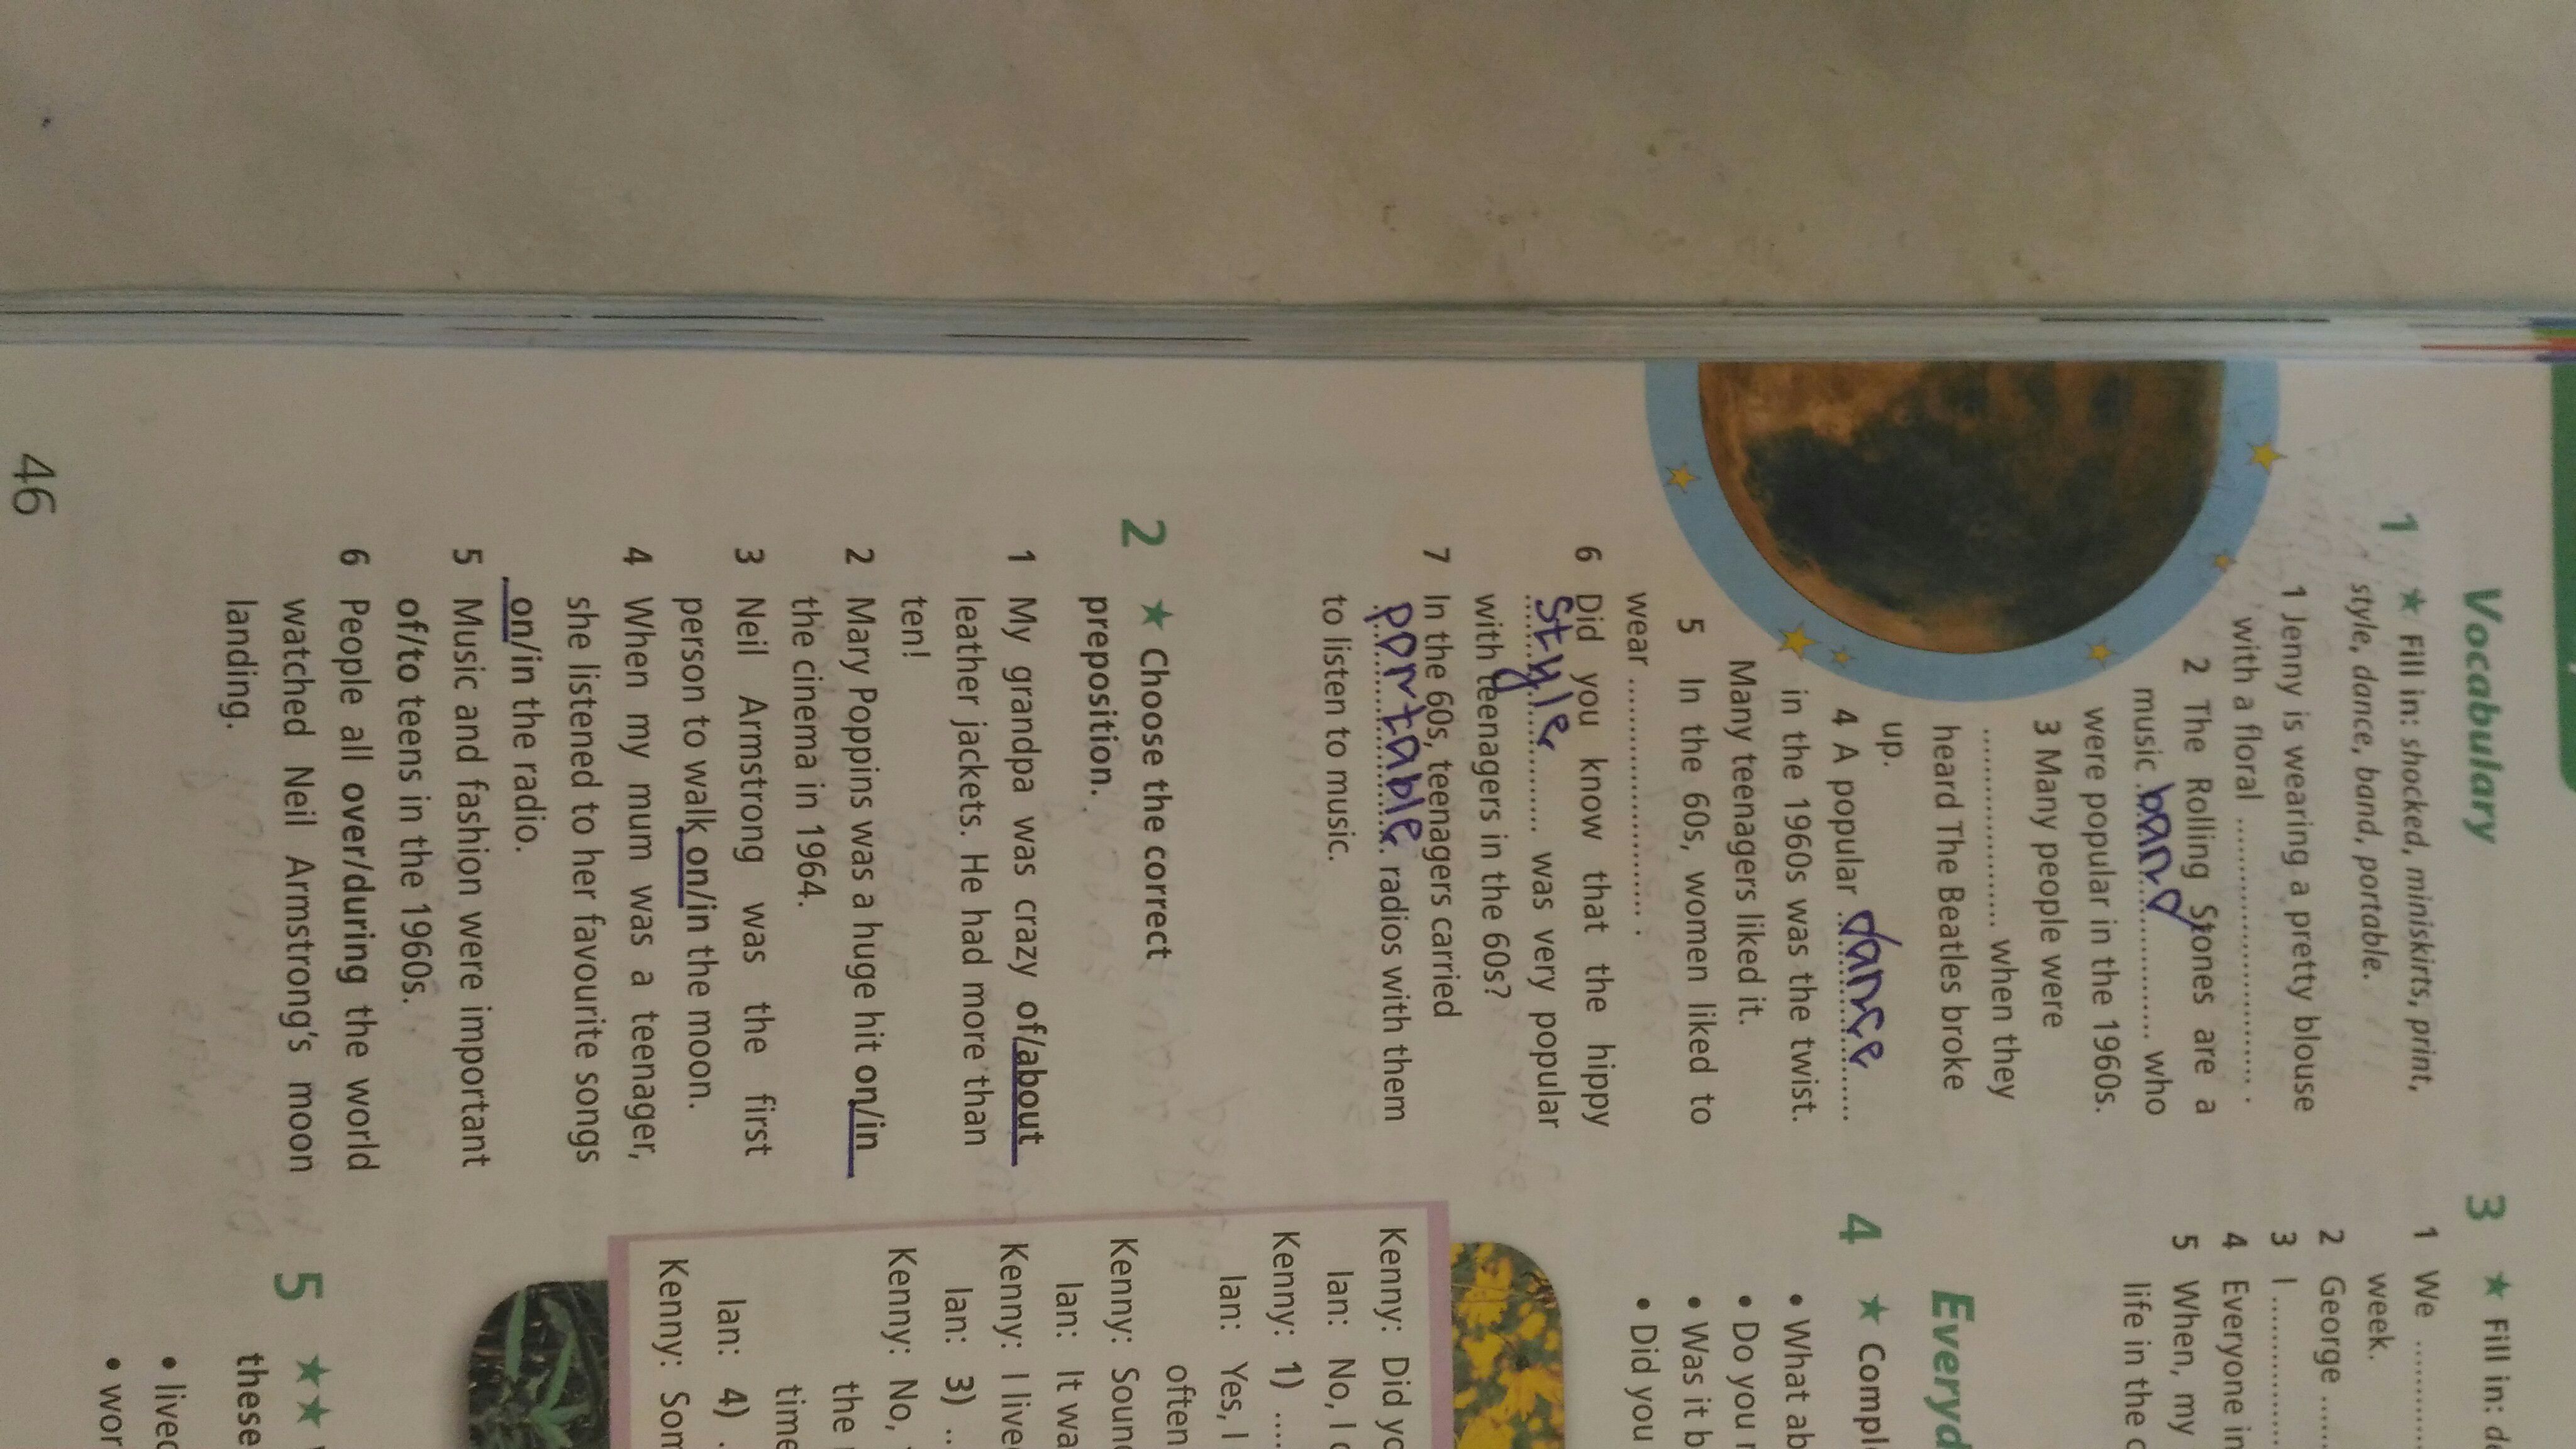 Vocabulary
1 ★ Fill in: shocked, miniskirts, print,
style, dance, band, portable.
1 Jenny is wearing a pretty blouse
with a floral ........................ .
2 The Rolling Stones are a
music band who
were popular in the 1960s.
3 Many people were
........................ when they
heard The Beatles broke
up.
4 A popular dance
in the 1960s was the twist.
Many teenagers liked it.
5 In the 60s, women liked to
wear ........................ .
6 Did you know that the hippy
style was very popular
with teenagers in the 60s?
7 In the 60s, teenagers carried
portable radios with them
to listen to music.
2 ★ Choose the correct
preposition.
1 My grandpa was crazy of/about
leather jackets. He had more than
ten!
2 Mary Poppins was a huge hit on/in
the cinema in 1964.
3 Neil Armstrong was the first
person to walk on/in the moon.
4 When my mum was a teenager,
she listened to her favourite songs
on/in the radio.
5 Music and fashion were important
of/to teens in the 1960s.
6 People all over/during the world
watched Neil Armstrong's moon
landing.
46
3 ★ Fill in: d
1 We ............
week.
2 George ......
3 I ................
4 Everyone in
5 When, my
life in the
Everyd
4 ★ Compl
• What ab
• Do you
• Was it b
• Did you
Kenny: Did yo
Ian: No, I
Kenny: 1) ....
Ian: Yes, I
often
Kenny: Soun
Ian: It wa
Kenny: I live
Ian: 3) ..
Kenny: No,
the
time
Ian: 4) .
Kenny: Som
5 ★★
these
• lived
• wor